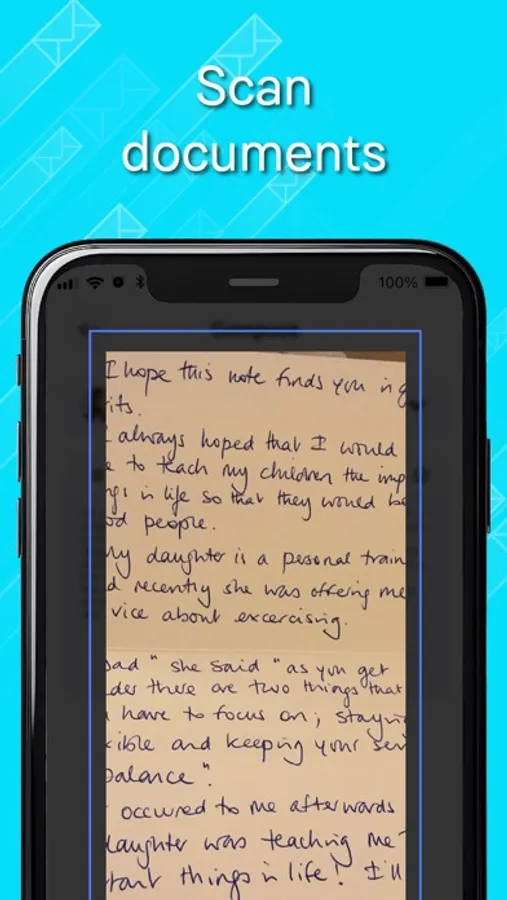 Scan
documents
100%
I hope this note finds you in g
its.
I always hoped that I would
e to teach my children the imp
ngs in life so that they would be
od people.
My daughter is a personal train
d recently she was offering me
vice about excercising.
Dad " she said " as you get
der there are two things that
u have to focus on; stayin
xible and keeping your sen
balance ".
t occured to me afterwards
daughter was teaching me
tant things in life! I'll